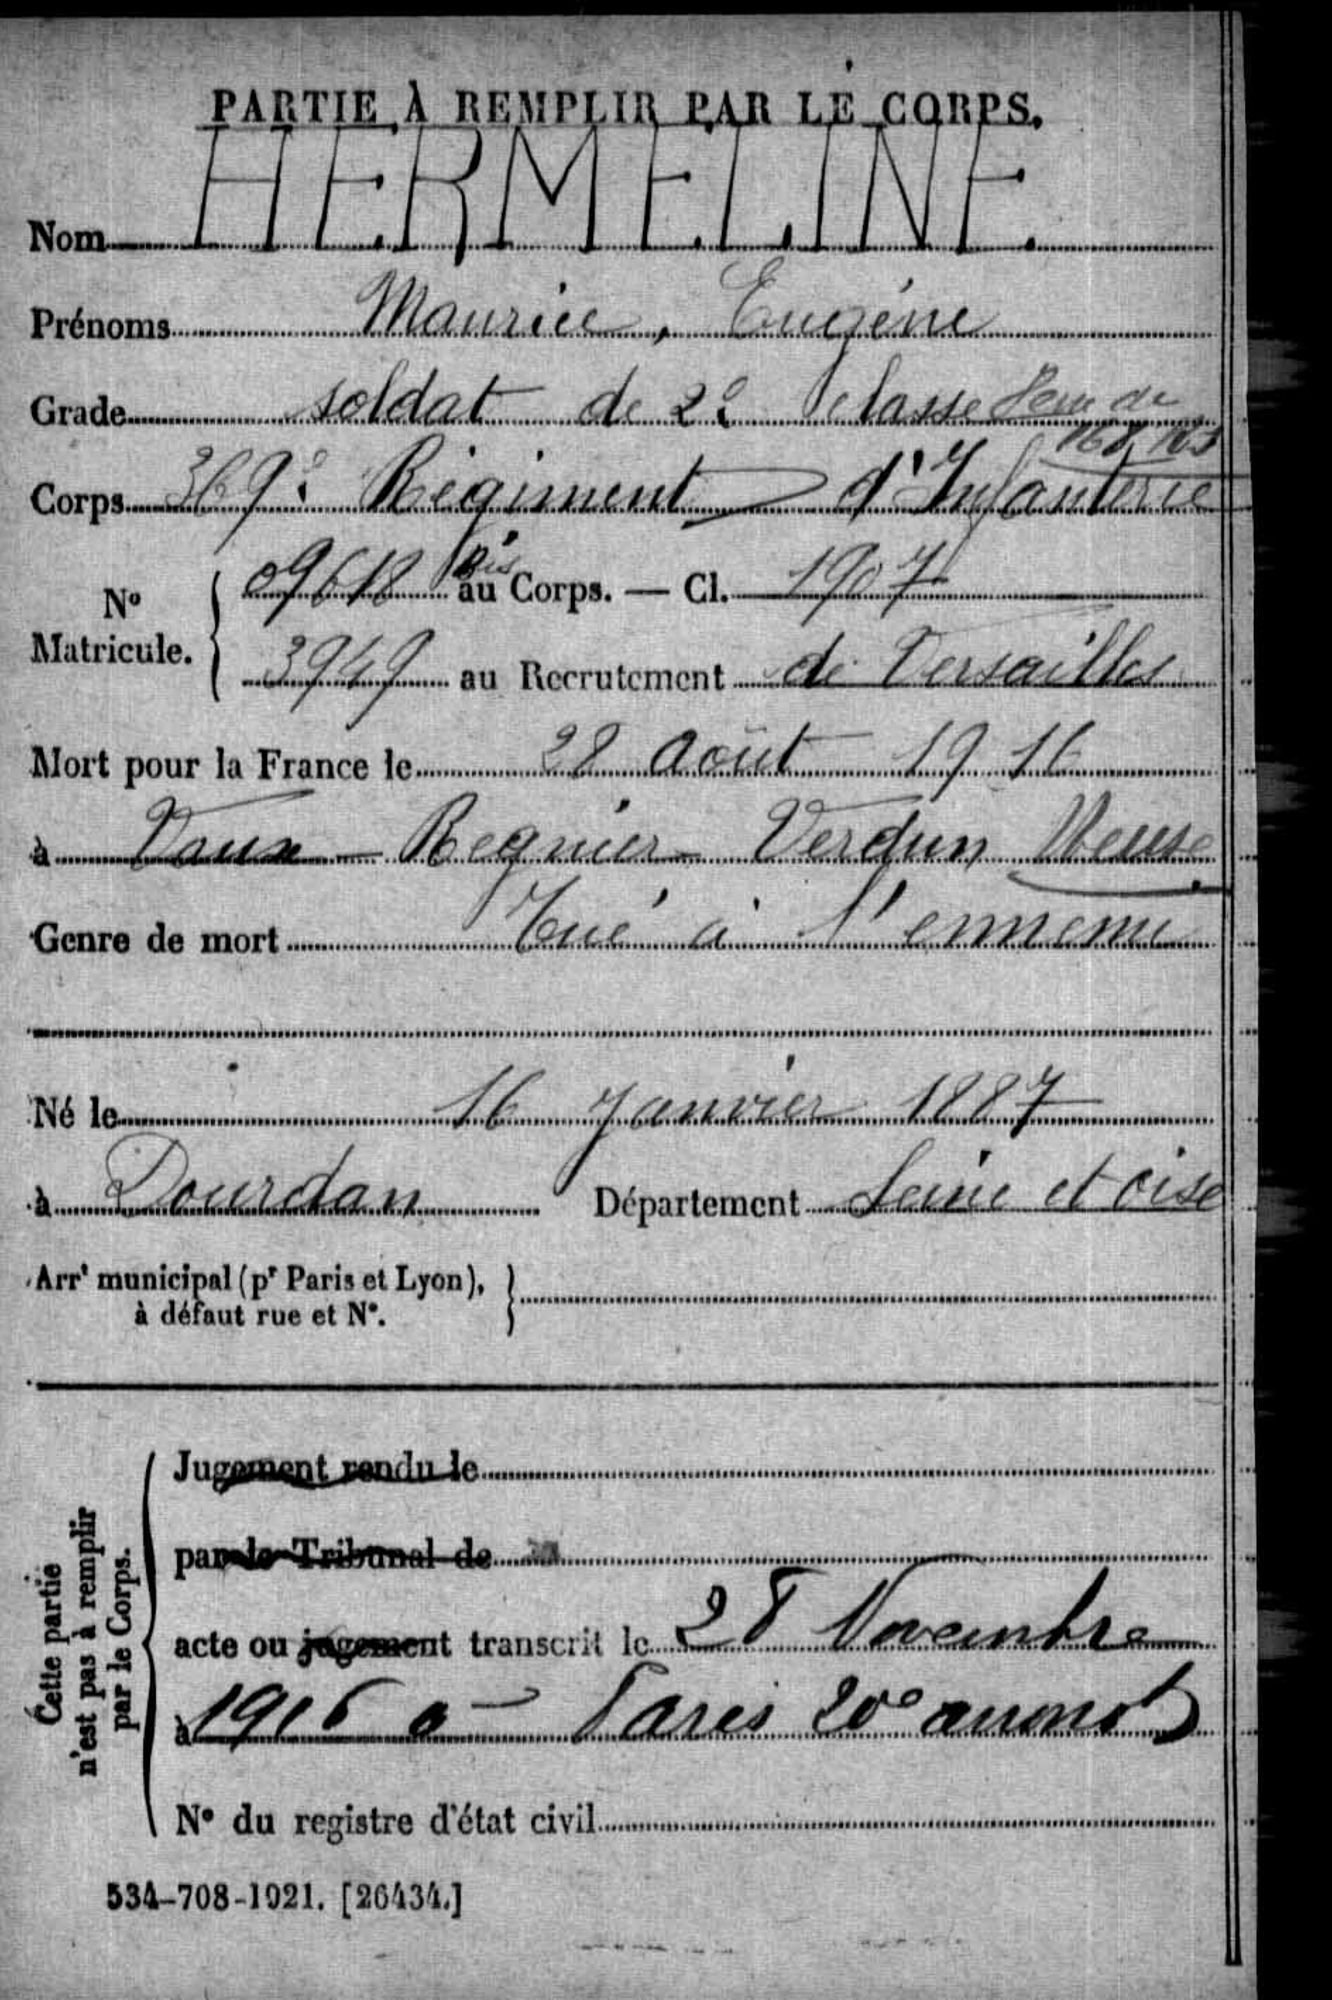 PARTIE À REMPLIR PAR LE CORPS.
Nom HERMELINE
Prénoms Maurice, Eugène
Grade soldat de 2e classe
Corps 369e Régiment d'Infanterie
No Matricule. 09618 bis au Corps. — Cl. 1907
3949 au Recrutement de Versailles
Mort pour la France le 28 Août 1916
à Vaux - Regnier - Verdun Meuse
Genre de mort Tué à l'ennemi
Né le 16 Janvier 1887
à Dourdan Département Seine et Oise
Arrt municipal (pr Paris et Lyon),
à défaut rue et No.
Cette partie
n'est pas à remplir
par le Corps.
Jugement rendu le
par le Tribunal de
acte ou jugement transcrit le 28 Novembre
à 1916 a Paris 20e arrondt
No du registre d'état civil
534-708-1921. [26434.]